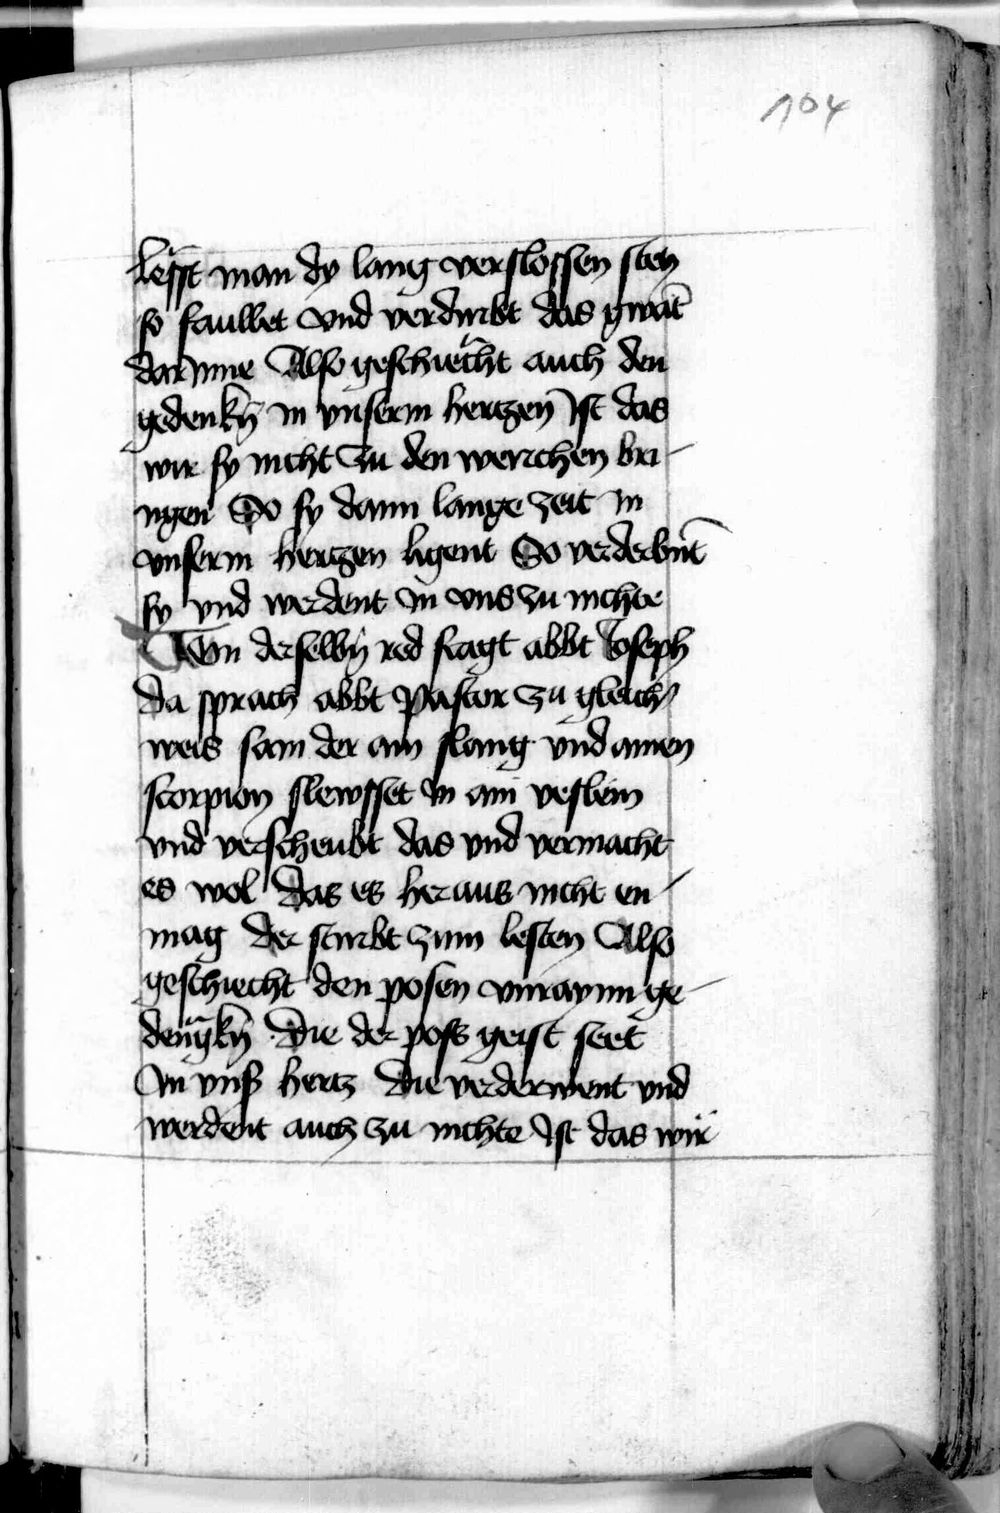 104
Lesst man dy lang verslossen sten
so faullet vnd verdirbt das gwāt
darinne Also geschiecht auch den
gedenkn̄ in vnserm hertzen Ist das
wir sy nicht zu den werchen bri-
ngen So sy dann lange zeit in
vnserm hertzen ligent So verderbnt̄
sy vnd werdent in vns zu nichte
Von derselbn̄ red fragt abbt Joseph
da sprach abbt Pastor zu gleich
weis sam der ain slang vnd ainen
scorpion slewsset in ain veslein
vnd verscheubt das vnd vermacht
es wol das es heraus nicht en-
mag der stirbt zum lesten Also
geschiecht den posen vnraynn ge-
dengkn̄ die der poss geist seet
In vnß hertz die verderwent vnd
werdent auch zu nichte Ist das wir